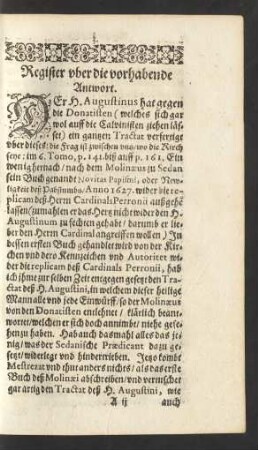 Register vber die vorhabende
Antwort.
DEr H. Augustinus hat gegen
die Donatisten (welches sich gar
wol auff die Calvinisten ziehen läs-
set) ein gantzen Tractat verfertigt
vber diese: die Frag ist zwischen vns, wo die Kirch
seye: im 6. Tomo, p. 141. biß auff p. 161. Ein
wenig hernach / nach dem Molinæus zu Sedan
sein Buch genandt Novitas Papismi, oder New-
tigkeit deß Pabstumbs / Anno 1627. wider die re-
plicam deß Herrn Cardinals Perronii außgehe
lassen / (zumahlen er das Hertz nicht wider den H.
Augustinum zu fechten gehabt / darumb er lie-
ber den Herrn Cardinal angreiffen wollen) In
dessen ersten Buch gehandlet wird von der Kir-
chen vnd dero Kennzeichen vnd Autoritet wi-
der die replicam deß Cardinals Perronii, hab
ich ihme zur selben Zeit entgegen gesetzt den Tra-
ctat deß H. Augustini, in welchem dieser heilige
Mann alle vnd jede Einwürff / so der Molinæus
von den Donatisten entlehnet / klärlich beant-
wortet / welchen er sich doch annimbt / niehe gese-
hen zu haben. Hab auch das mahl alles das je-
nig / was der Sedanische Prædicant darzu ge-
setzt / widerlegt vnd hindertrieben. Jetzo kombt
Mestrezat vnd thut anders nichts / als das erste
Buch deß Molinæi abschreiben / vnd vernichtet
gar artig den Tractat deß H. Augustini, wie
A ij auch